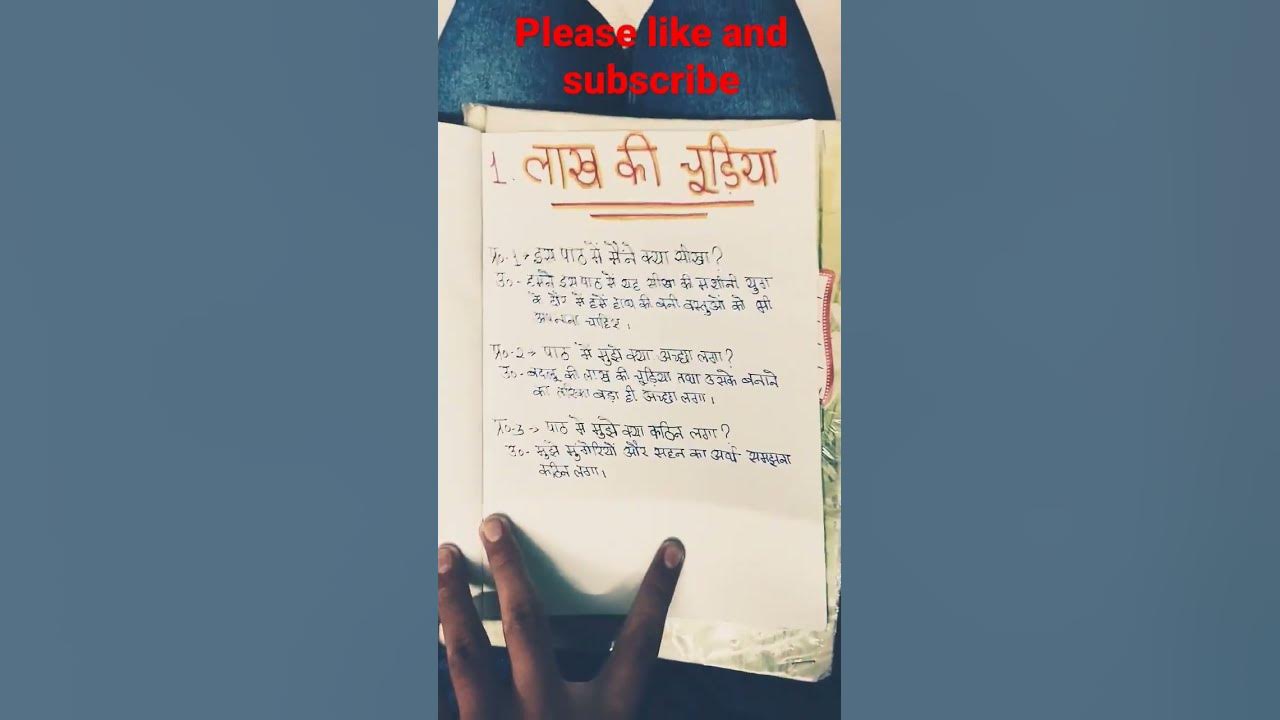 Please like and
subscribe
1. लाख की चूड़िया
प्र०-1→ इस पाठ से मैंने क्या सीखा?
उ०- हमने इस पाठ से यह सीखा की मशीनी युग
के दौर में हमें हाथ की बनी वस्तुओं को भी
अपनाना चाहिए।
प्र०-2→ पाठ में मुझे क्या अच्छा लगा?
उ०- बदलू की लाख की चूड़िया तथा उसके बनाने
का तरिका बड़ा ही अच्छा लगा।
प्र०-3→ पाठ में मुझे क्या कठिन लगा?
उ०- मुझे मुंगेरियों और सहन का अर्थ समझना
कठिन लगा।